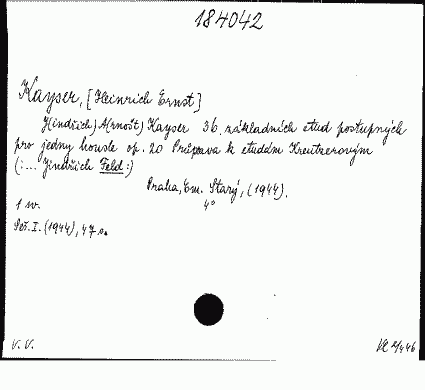 184042
Kayser, [Heinrich Ernst]
J(indřich) A(rnošt) Kayser 36 základních etud postupných
pro jedny housle op. 20 Průprava k etudám Kreutzerovým
(:... Jindřich Feld:)
Praha, Em. Starý, (1944).
4°
1 w.
Seš. I. (1944), 47 s.
V. V.